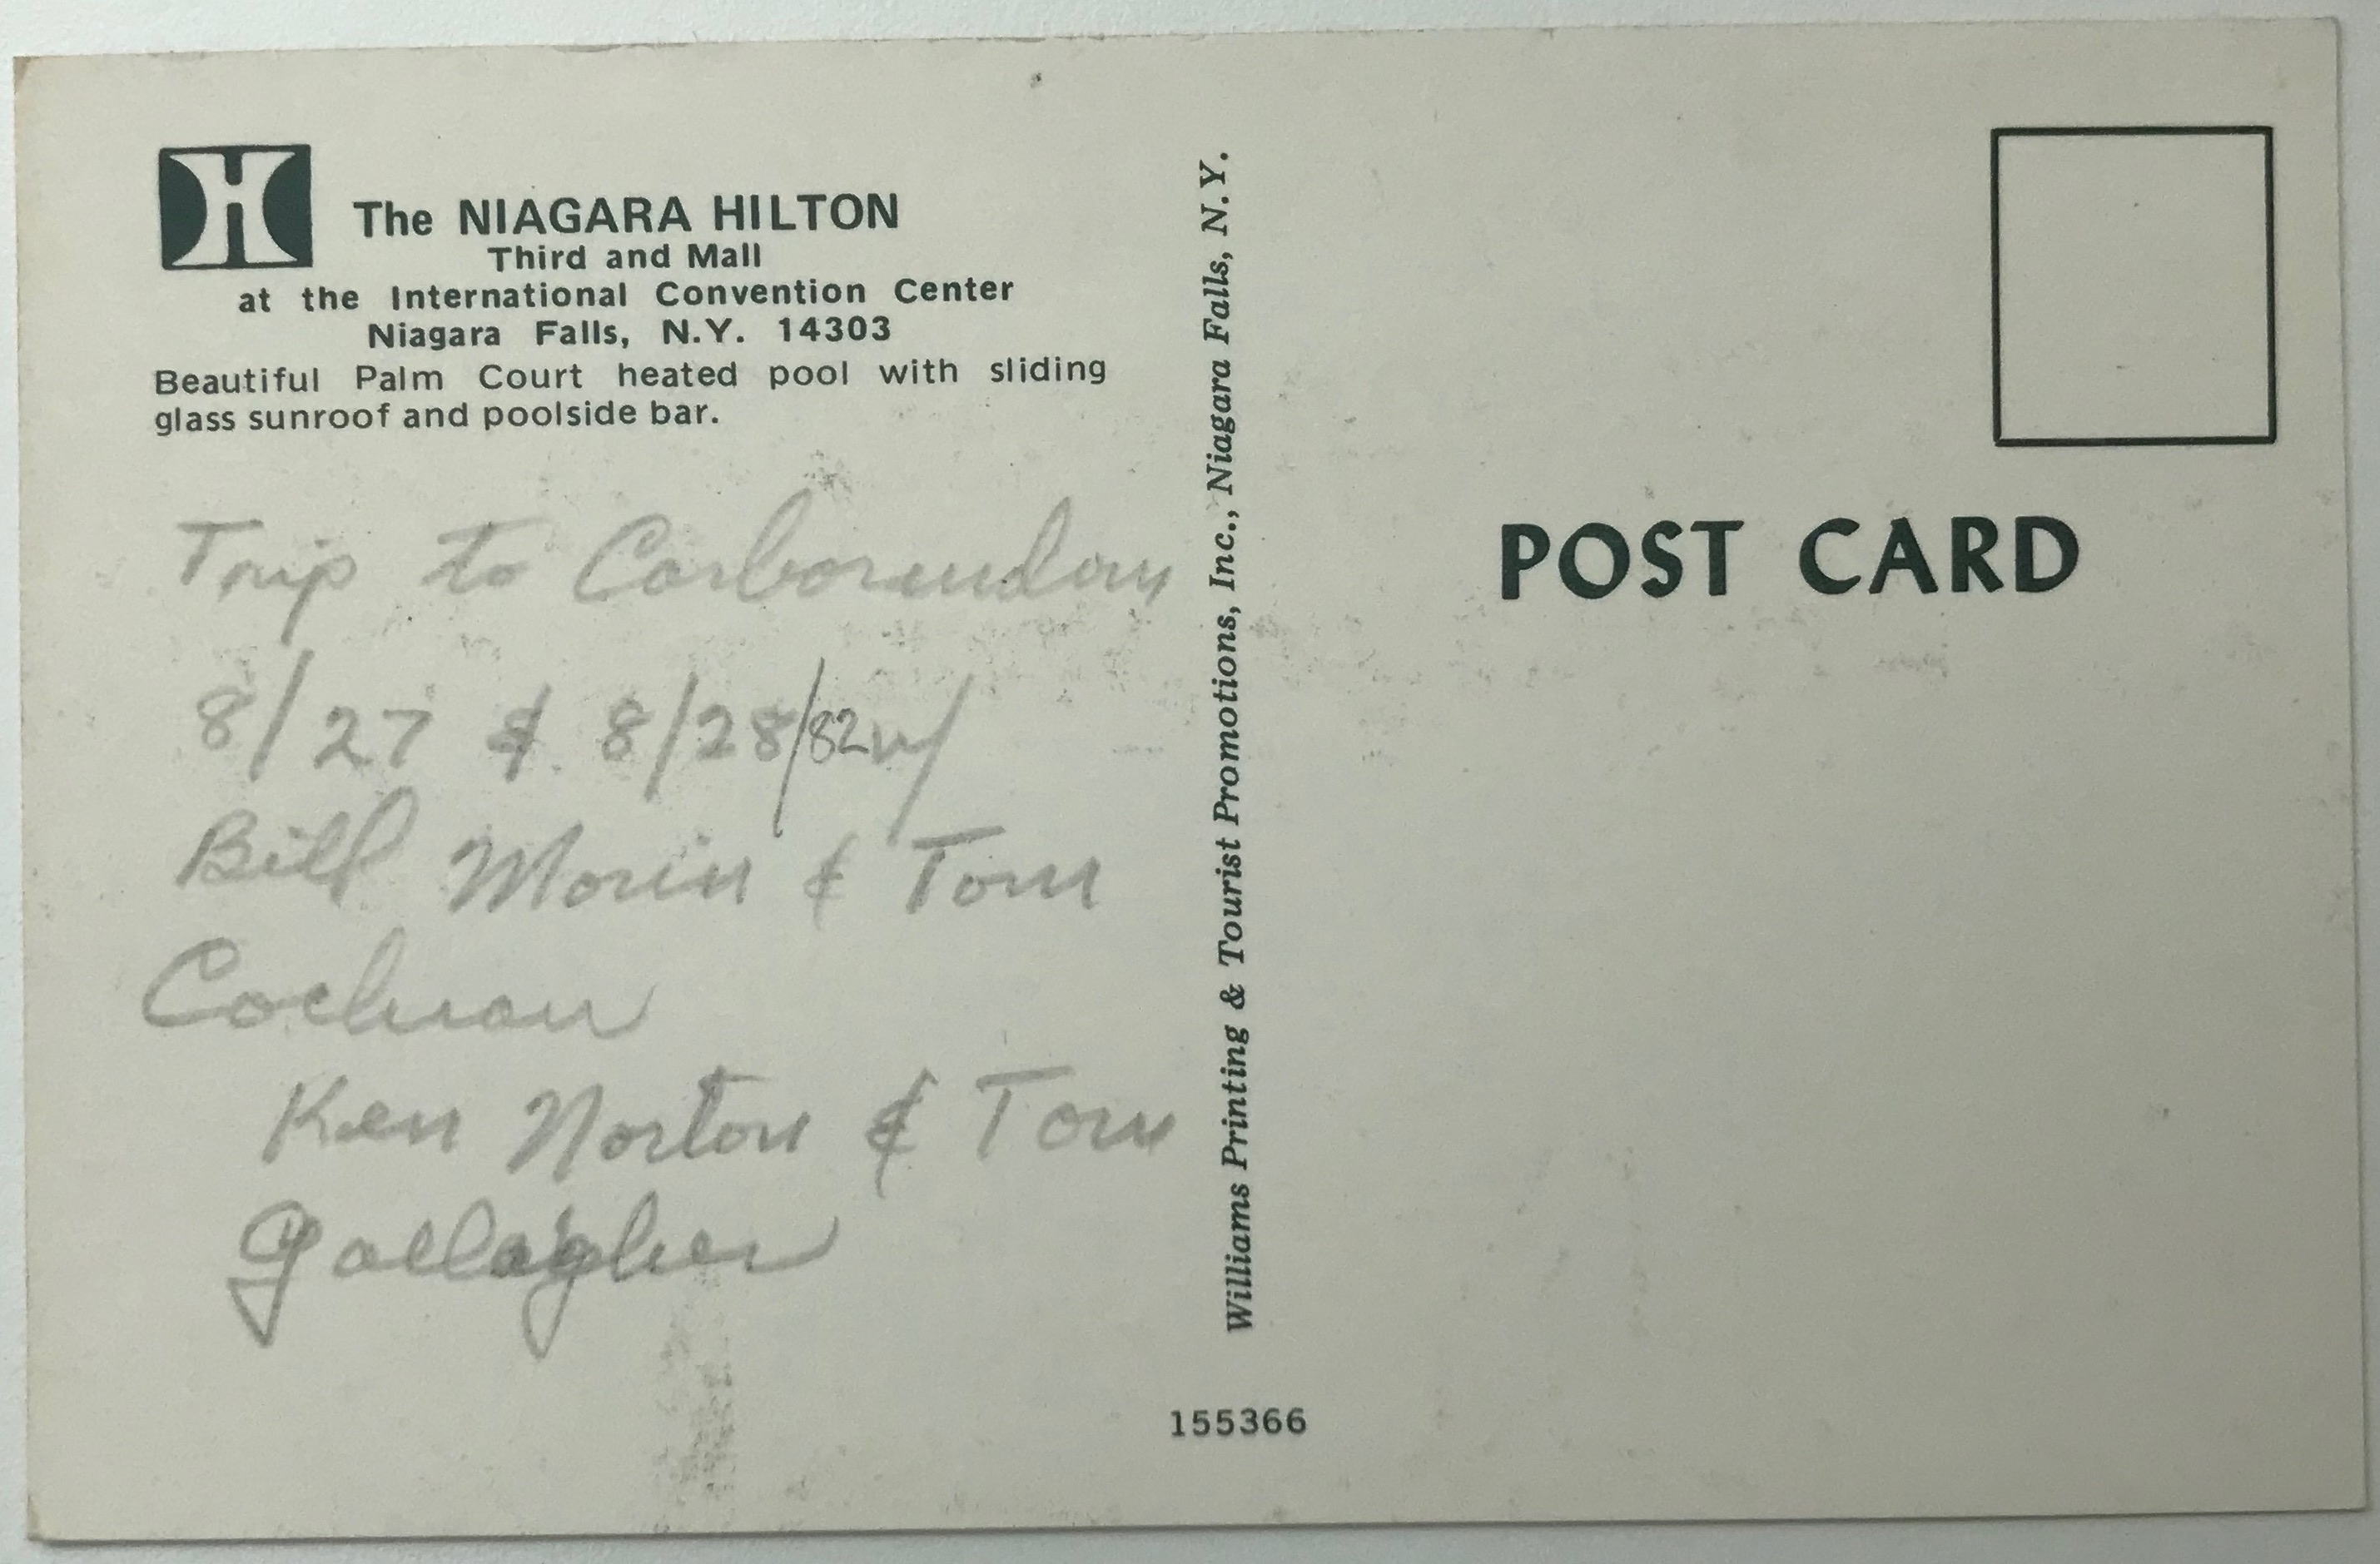 H
The NIAGARA HILTON
Third and Mall
at the International Convention Center
Niagara Falls, N.Y. 14303
Beautiful Palm Court heated pool with sliding
glass sunroof and poolside bar.
Trip to Carborundam
8/27 & 8/28/82 w/
Bill Morin & Tom
Cochran
Ken Norton & Tom
Gallagher
Williams Printing & Tourist Promotions, Inc., Niagara Falls, N.Y.
155366
POST CARD